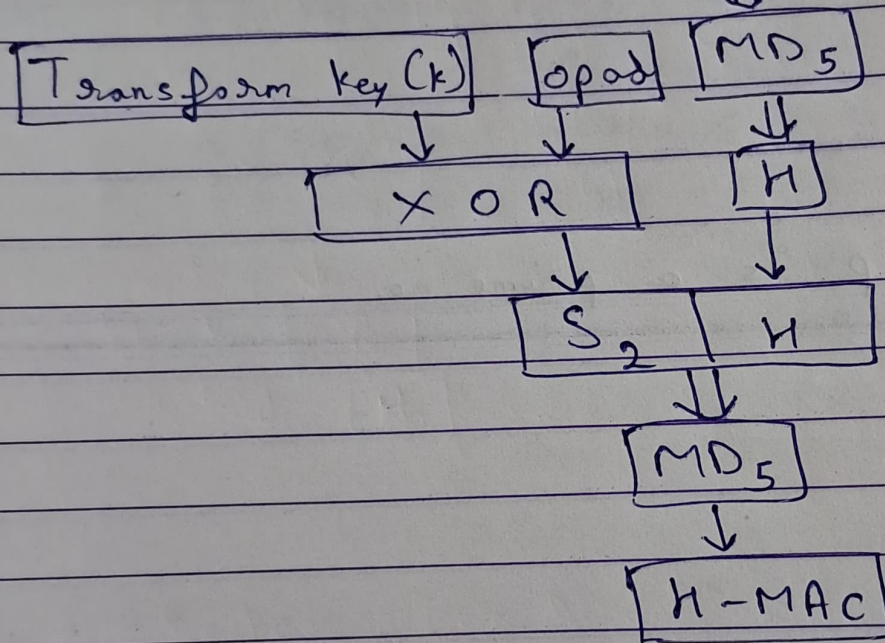 Transform key (k) opad MD5
X O R H
S2 H
MD5
H-MAC